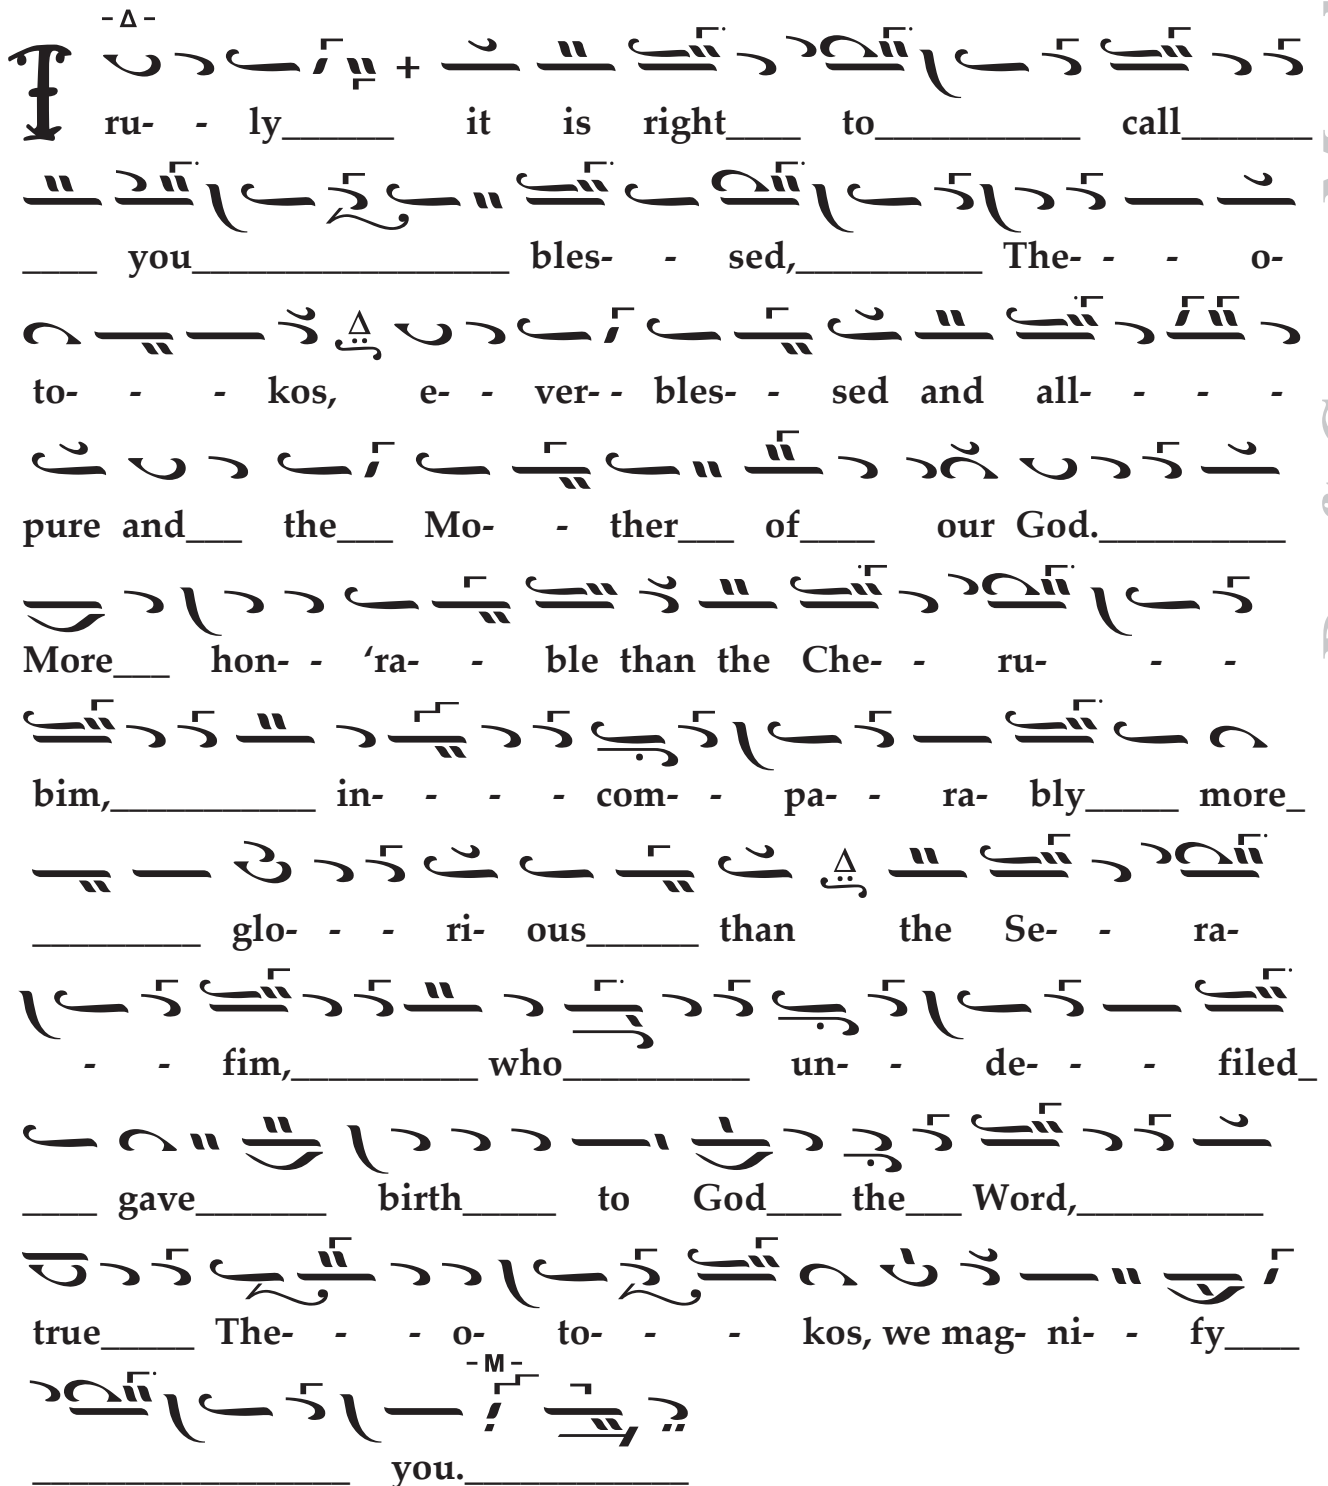 - Δ -
Tru- - ly______ it is right____ to___________ call_______
____ you_________________ bles- - sed,__________ The- - - o-
to- - - kos, e- - ver- - bles- - sed and all- - - -
pure and___ the___ Mo- - ther___ of____ our God.__________
More___ hon- - ‘ra- - ble than the Che- - ru- - -
bim,___________ in- - - - com- - pa- - ra- bly_____ more_
_________ glo- - - ri- ous______ than the Se- - ra-
- - fim,__________ who__________ un- - de- - - filed_
____ gave_______ birth_____ to God____ the___ Word,__________
true_____ The- - - o- to- - - kos, we mag- ni- - fy____
- M -
_________________ you.____________